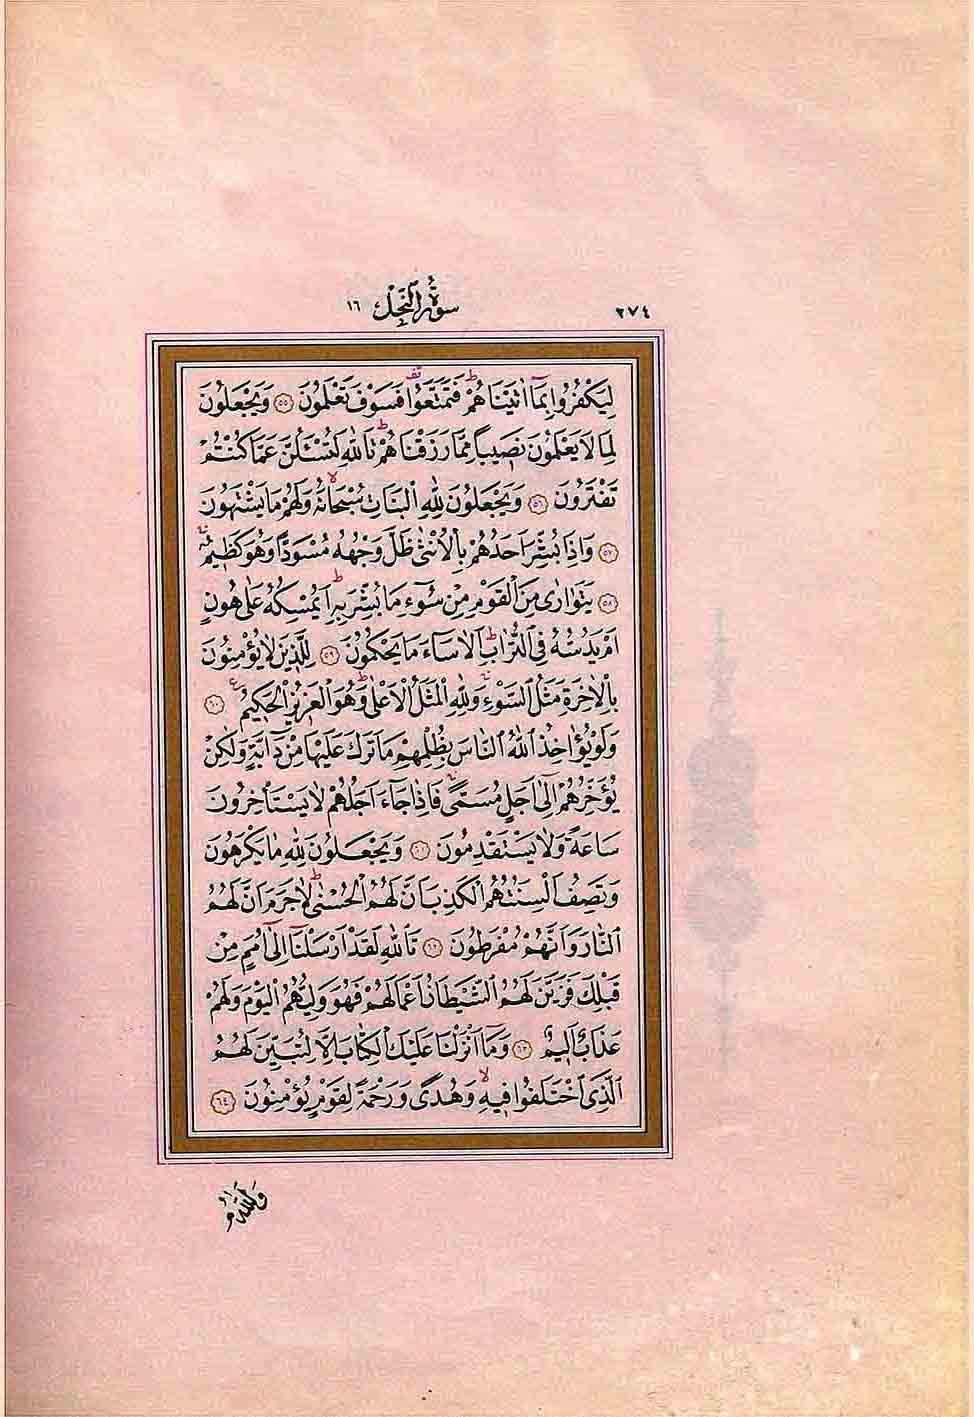 ٢٧٤ سُورَةُ النَّحْلِ ١٦
لِيَكْفُرُوا بِمَٓا اٰتَيْنَاهُمْۜ فَتَمَتَّعُوا۠ فَسَوْفَ تَعْلَمُونَ ﴿٥٥﴾ وَيَجْعَلُونَ
لِمَا لَا يَعْلَمُونَ نَصٖيبًا مِمَّا رَزَقْنَاهُمْۜ تَاللّٰهِ لَتُسْـَٔلُنَّ عَمَّا كُنْتُمْ
تَفْتَرُونَ ﴿٥٦﴾ وَيَجْعَلُونَ لِلّٰهِ الْبَنَاتِ سُبْحَانَهُۙ وَلَهُمْ مَا يَشْتَهُونَ
﴿٥٧﴾ وَاِذَا بُشِّرَ اَحَدُهُمْ بِالْاُنْثٰى ظَلَّ وَجْهُهُ مُسْوَدًّا وَهُوَ كَظٖيمٌۚ
﴿٥٨﴾ يَتَوَارٰى مِنَ الْقَوْمِ مِنْ سُٓوءِ مَا بُشِّرَ بِهٖۜ اَيُمْسِكُهُ عَلٰى هُونٍ
اَمْ يَدُسُّهُ فِي التُّرَابِۜ اَلَا سَٓاءَ مَا يَحْكُمُونَ ﴿٥٩﴾ لِلَّذٖينَ لَا يُؤْمِنُونَ
بِالْاٰخِرَةِ مَثَلُ السَّوْءِۚ وَلِلّٰهِ الْمَثَلُ الْاَعْلٰىۜ وَهُوَ الْعَزٖيزُ الْحَكٖيمُ ع ﴿٦٠﴾
وَلَوْ يُؤَاخِذُ اللّٰهُ النَّاسَ بِظُلْمِهِمْ مَا تَرَكَ عَلَيْهَا مِنْ دَٓابَّةٍ وَلٰكِنْ
يُؤَخِّرُهُمْ اِلٰٓى اَجَلٍ مُسَمًّىۚ فَاِذَا جَٓاءَ اَجَلُهُمْ لَا يَسْتَأْخِرُونَ
سَاعَةً وَلَا يَسْتَقْدِمُونَ ﴿٦١﴾ وَيَجْعَلُونَ لِلّٰهِ مَا يَكْرَهُونَ
وَتَصِفُ اَلْسِنَتُهُمُ الْكَذِبَ اَنَّ لَهُمُ الْحُسْنٰىۜ لَا جَرَمَ اَنَّ لَهُمُ
النَّارَ وَاَنَّهُمْ مُفْرَطُونَ ﴿٦٢﴾ تَاللّٰهِ لَقَدْ اَرْسَلْنَٓا اِلٰٓى اُمَمٍ مِنْ
قَبْلِكَ فَزَيَّنَ لَهُمُ الشَّيْطَانُ اَعْمَالَهُمْ فَهُوَ وَلِيُّهُمُ الْيَوْمَ وَلَهُمْ
عَذَابٌ اَلٖيمٌ ﴿٦٣﴾ وَمَٓا اَنْزَلْنَا عَلَيْكَ الْكِتَابَ اِلَّا لِتُبَيِّنَ لَهُمُ
الَّذِي اخْتَلَفُوا فٖيهِۙ وَهُدًى وَرَحْمَةً لِقَوْمٍ يُؤْمِنُونَ ﴿٦٤﴾
وَاللّٰهُ